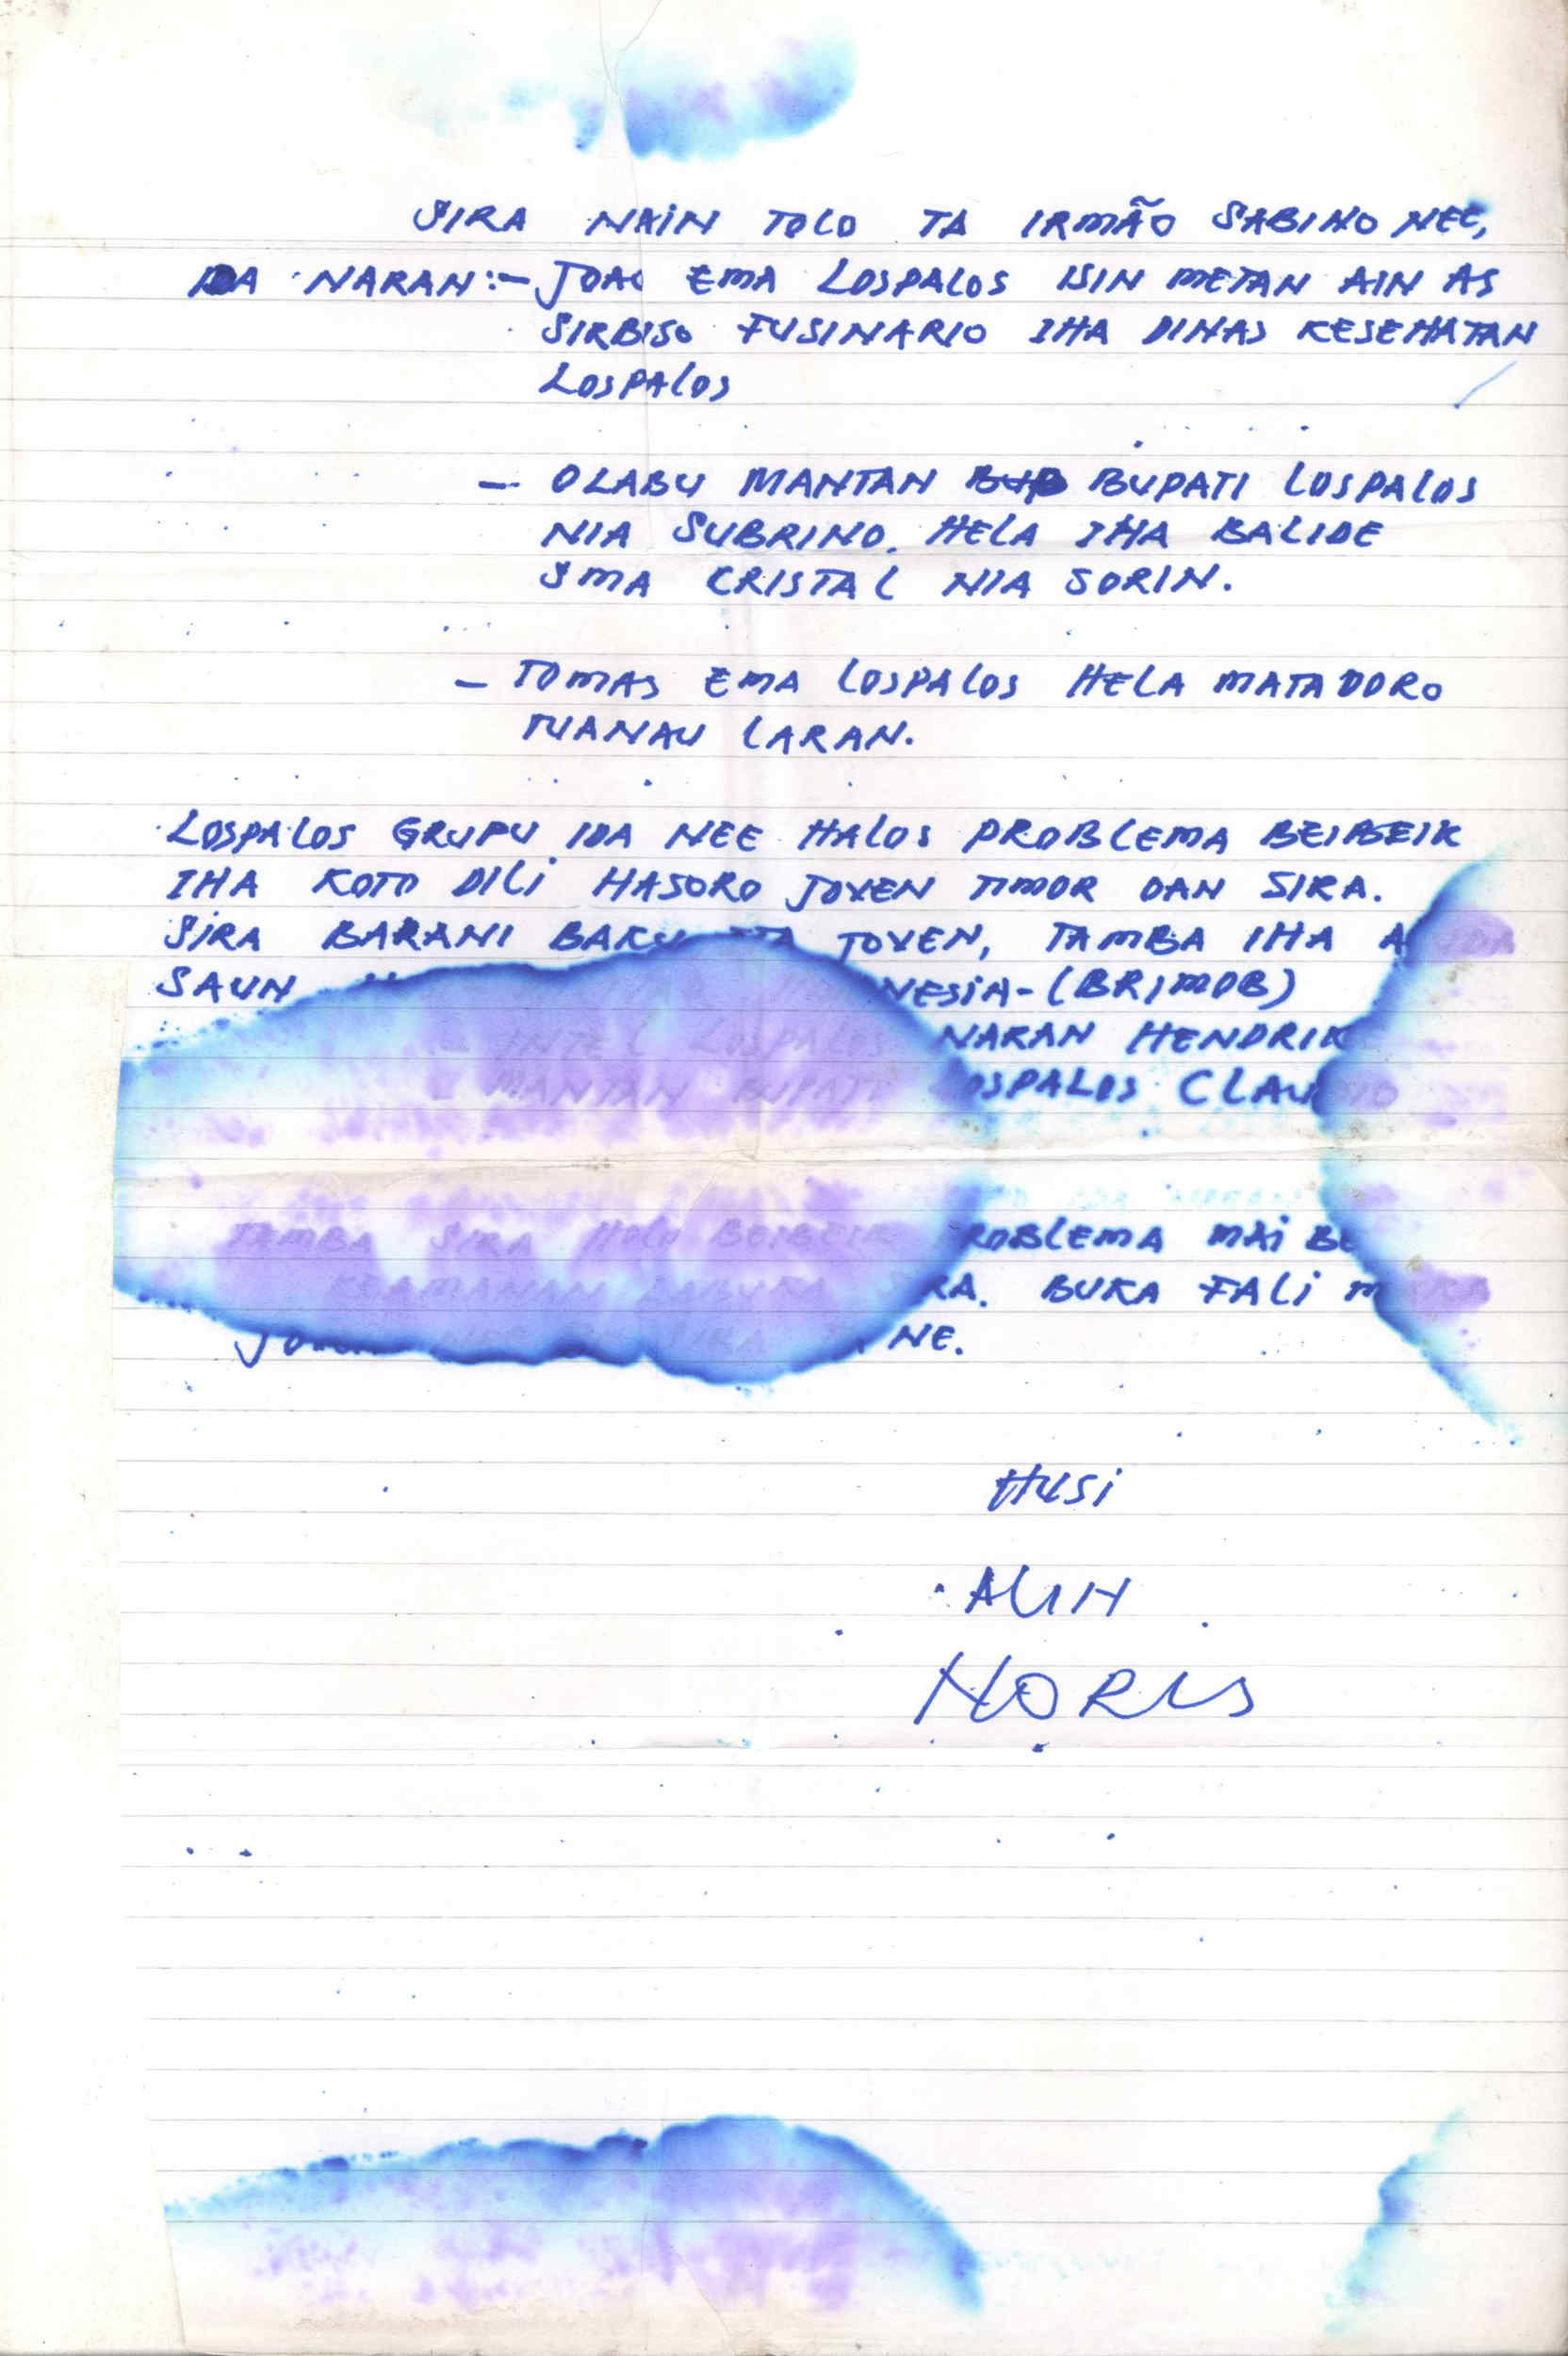 SIRA NAIN TOLO TA IRMÃO SABINO NEE,
IDA NARAN:- JOAO EMA LOSPALOS ISIN METAN AIN AS
SIRBISO FUSINARIO IHA DINAS KESEHATAN
LOSPALOS
- OLABU MANTAN BUPATI LOSPALOS
NIA SUBRINO. HELA IHA BALIDE
SMA CRISTAL NIA SORIN.
- TOMAS EMA LOSPALOS HELA MATADORO
TUANAU LARAN.
LOSPALOS GRUPU IDA NEE HALOS PROBLEMA BEIBEIK
IHA KOTO DILI HASORO JOVEN TIMOR OAN SIRA.
SIRA BARANI BAKU ITA JOVEN, TAMBA IHA
SAUN (BRIMOB)
- INTEL LOSPALOS NARAN HENDRIK
- MANTAN BUPATI LOSPALOS CLAUDIO
TAMBA SIRA HALO BEIBEIK PROBLEMA MAI
KEAMANAN LABUKA SIRA. BUKA FALI
NE.
HUSI
ALIH
NORIS